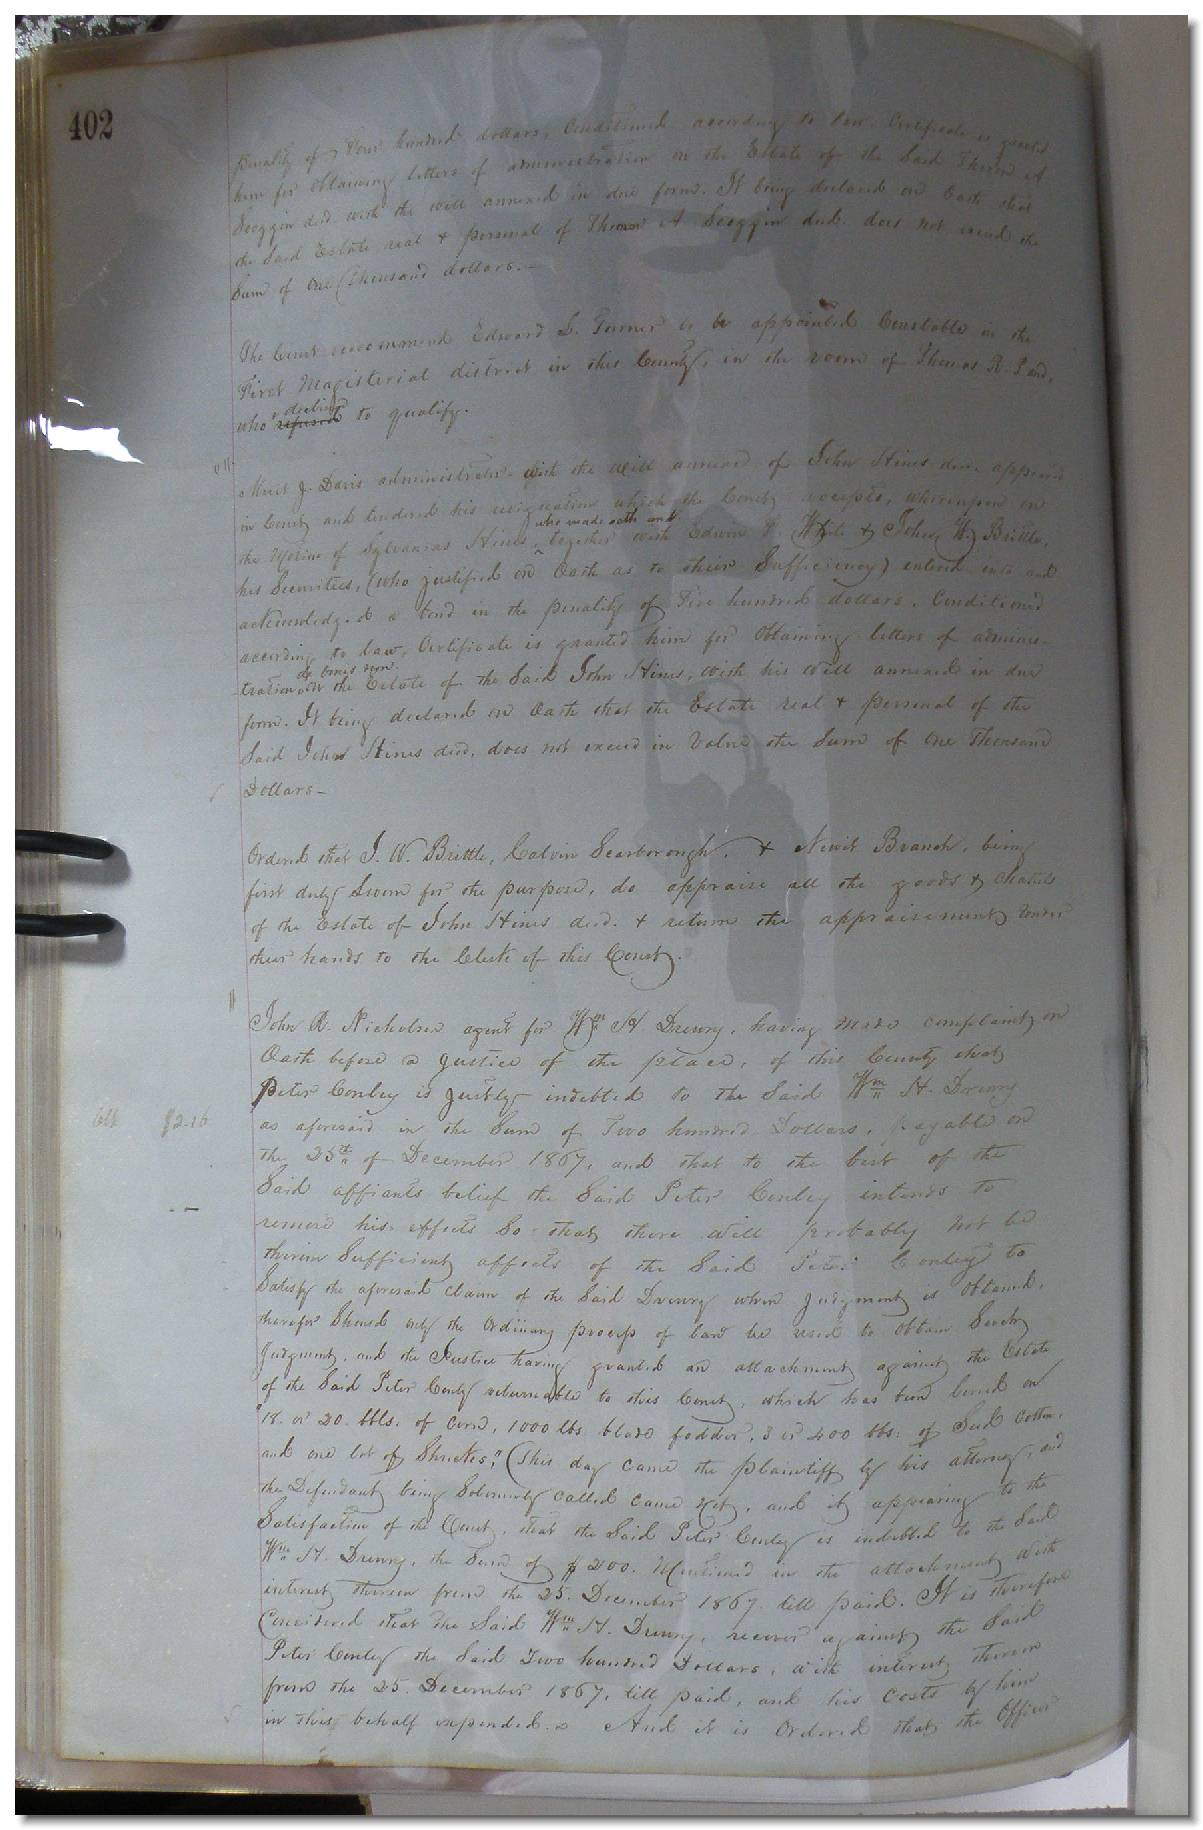 402
penalty of Four hundred dollars, Conditioned according to law. Certificate is granted
him for obtaining letters of administration on the Estate of the Said Thomas A
Scoggin decd. with the will annexed in due form. It being declared on Oath that
the Said Estate real & personal of Thomas A Scoggin decd. does not exceed the
Sum of One Thousand dollars.—
The Court reccommend Edward S. Turner to be appointed Constable in the
First Magisterial district in this County, in the room of Thomas R. Pand,
declines
who refused to qualify.
J. Davis administrator with the will annexed of John Hines decd. appeared
in Court and tendered his resignation which the Court accepts, whereupon on
who made oath and
the Motion of Sylvanas Hines, together with Edwin White & John W. Brittle,
his Securities, (who justified on Oath as to their Sufficiency) entered into and
acknowledged a bond in the penalty of Five hundred dollars. Conditioned
according to law, Certificate is granted him for Obtaining letters of adminis-
de bonis non
tration on the Estate of the Said John Hines, with his will annexed in due
form. It being declared on Oath that the Estate real & personal of the
Said John Hines decd. does not exceed in Value the Sum of One Thousand
Dollars—
Ordered that J. W. Brittle, Calvin Scarborough, & Newit Branch, being
first duly Sworn for the purpose, do appraise all the goods & Chattels
of the Estate of John Hines decd. & return the appraisement under
their hands to the Clerk of this Court.
John R. Nicholson agent for Wm H Drewry, having made complaint on
Oath before a Justice of the peace, of this County that
Peter Conley is justly indebted to the Said Wm H. Drewry
$2.16
as aforesaid in the Sum of Two hundred Dollars, payable on
the 25th of December 1867, and that to the best of the
Said affiants belief the Said Peter Conley intends to
remove his effects So that there will probably not be
therein Sufficient effects of the Said Peter Conley to
Satisfy the aforesaid claim of the Said Drewry when Judgment is Obtained,
therefor Should only the Ordinary process of law be used to obtain Such
Judgment, and the Justice having granted an attachment against the Estate
of the Said Peter Conly returnable to this Court, which has been levied on
"18. or 20. bbls. of corn, 1000 lbs blade fodder, 3 or 400 lbs. of Seed Cotton,
and one lot of Shucks," (This day came the plaintiff by his attorney, and
the Defendant being Solemnly called came not, and it appearing to the
Satisfaction of the Court, that the Said Peter Conley is indebted to the Said
Wm H. Drewry, the Sum of $200. Mentioned in the attachment with
interest thereon from the 25. December 1867. till paid. It is therefore
Considered that the Said Wm H. Drewry, recover against the Said
Peter Conley the Said Two hundred Dollars, with interest thereon
from the 25. December 1867, till paid, and his costs by him
in this behalf expended. And it is Ordered that the Officer